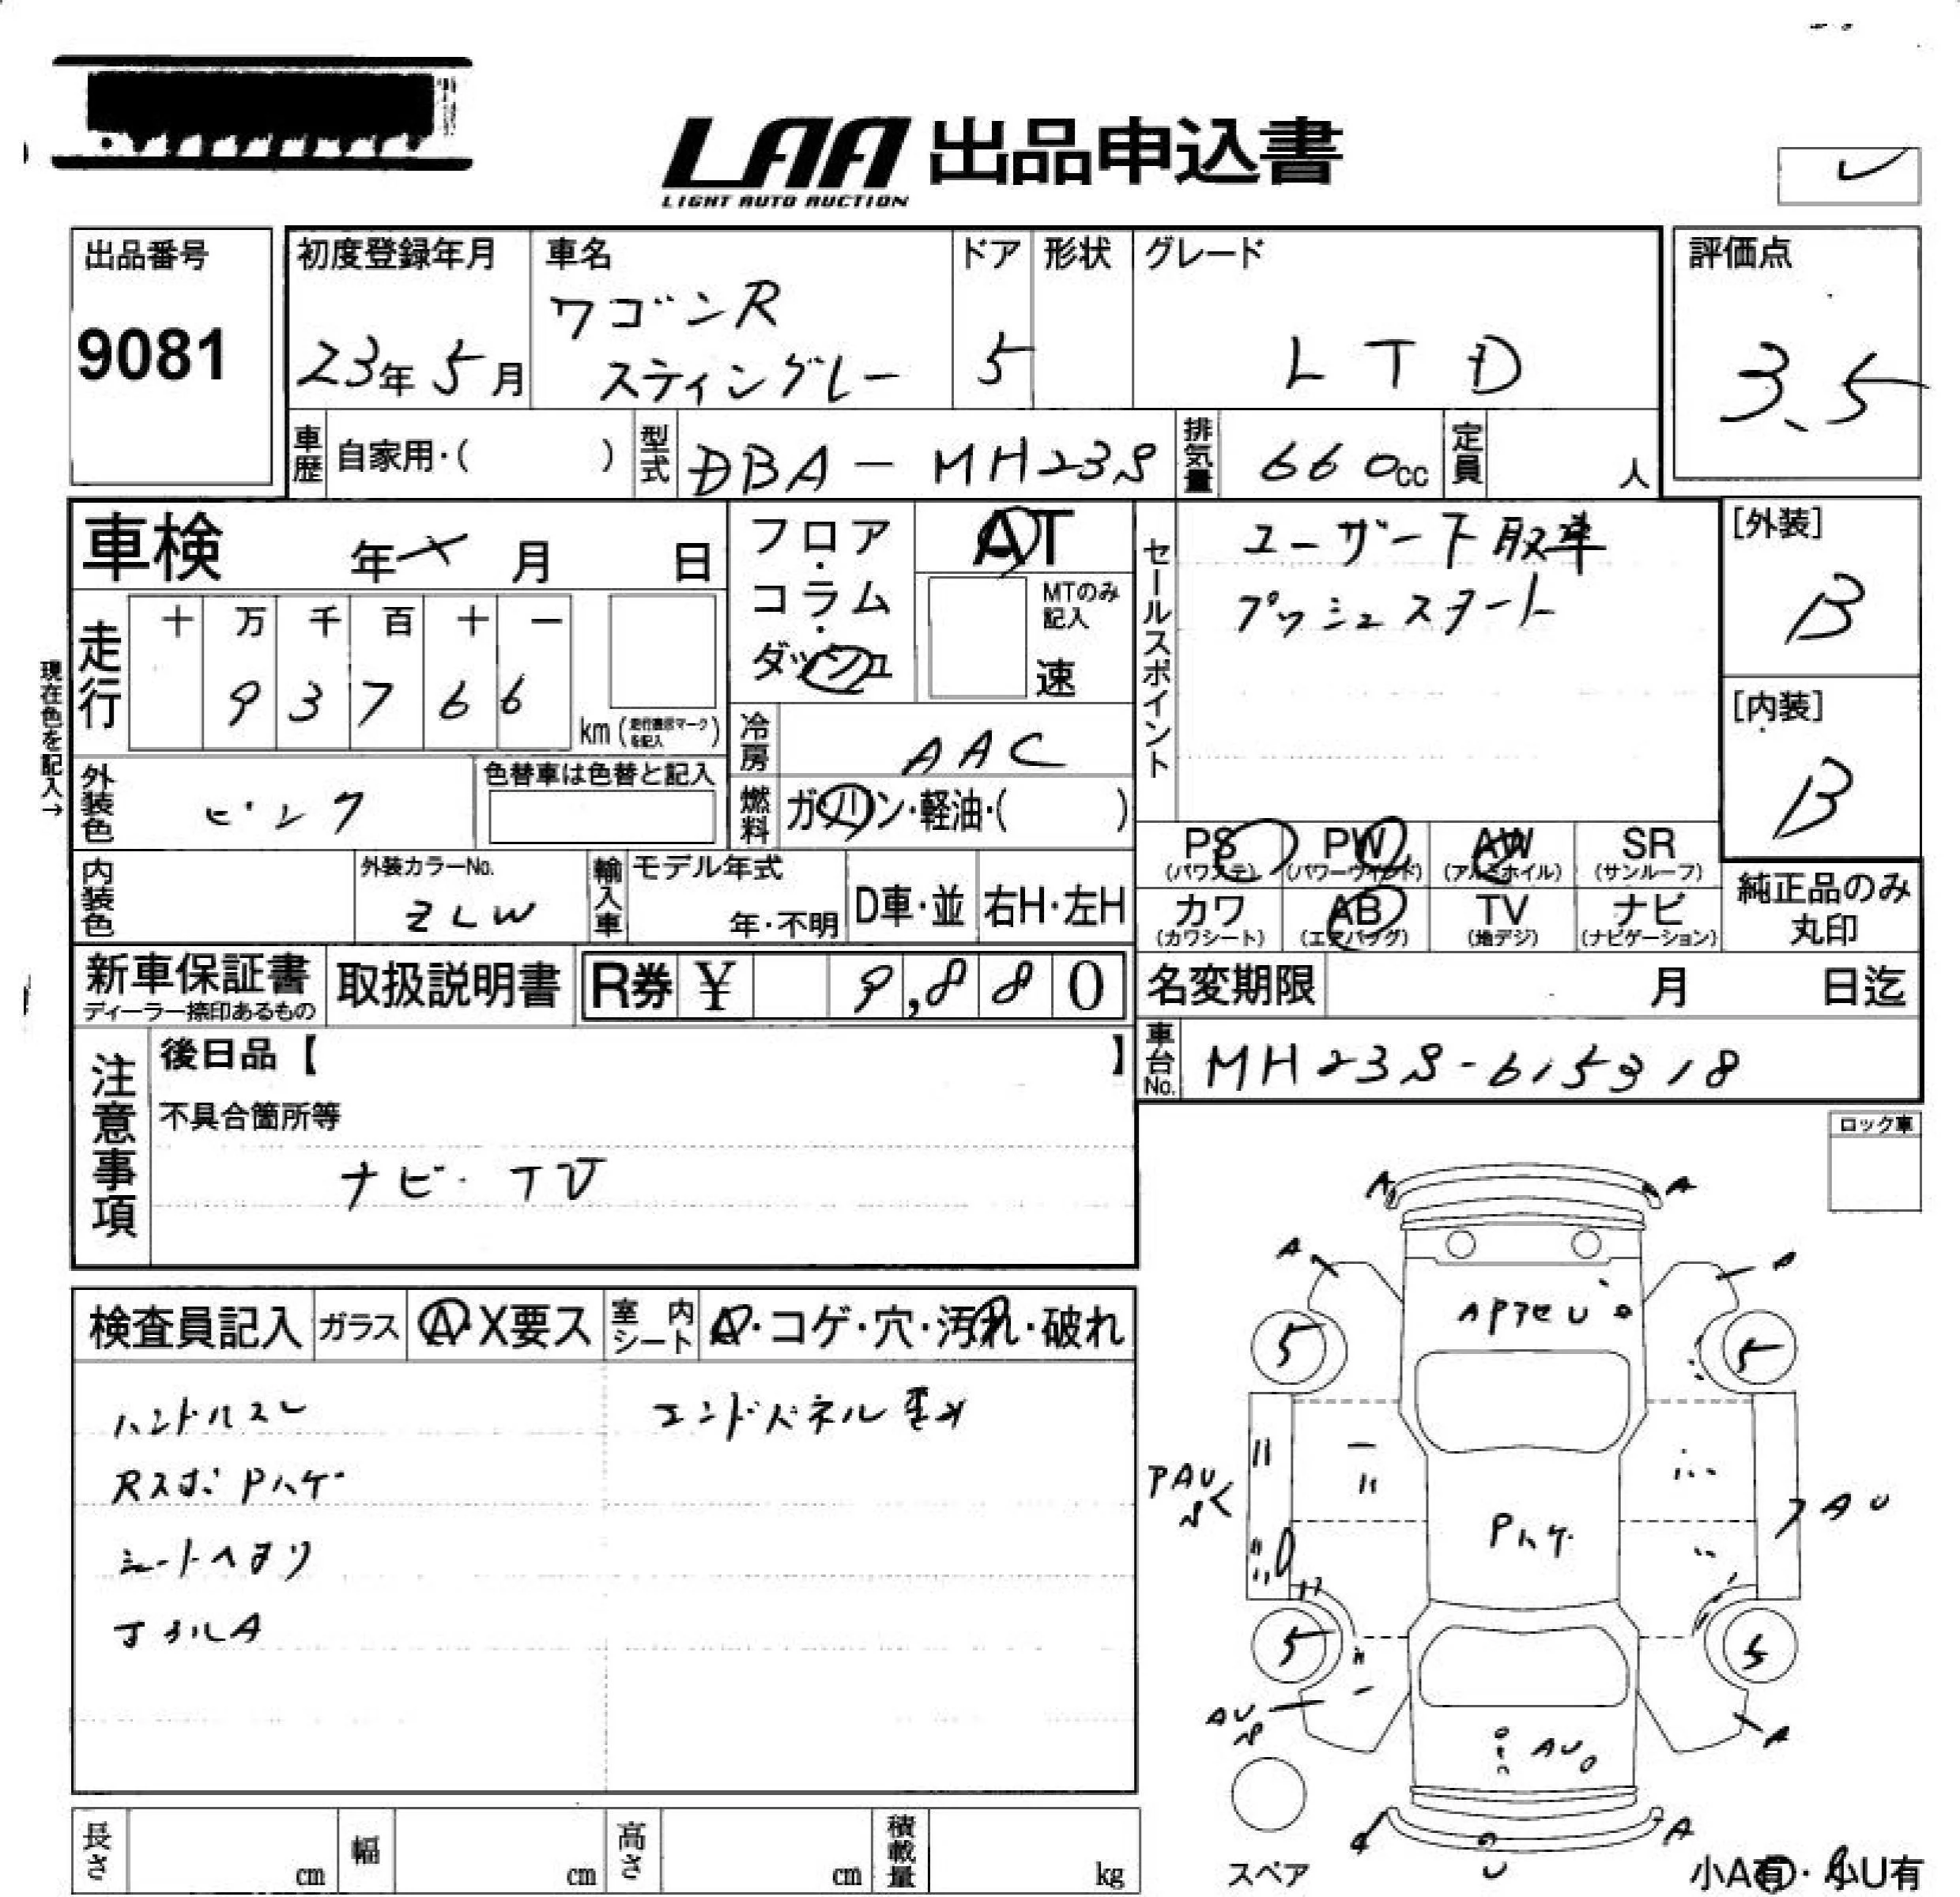 LAA 出品申込書
LIGHT AUTO AUCTION
出品番号
9081
初度登録年月
23年 5月
車名
ワゴンR
スティングレー
ドア
5
形状
グレード
LTD
評価点
3.5
車歴 自家用・( )
型式 DBA-MH23S
排気量 660cc
定員 人
車検 年 月 日
フロア・コラム・ダッシュ
AT
MTのみ記入
速
セールスポイント
ユーザー下取車
プッシュスタート
[外装]
B
[内装]
B
現在色を記入→
走行
十 万 千 百 十 一
9 3 7 6 6
km
冷房 AAC
燃料 ガソリン・軽油・( )
外装色 ピンク
色替車は色替と記入
内装色
外装カラーNo.
ZLW
輸入車
モデル年式
年・不明
D車・並
右H・左H
PS (パワステ)
PW (パワーウインド)
AW (アルミホイル)
SR (サンルーフ)
カワ (カワシート)
AB (エアバッグ)
TV (地デジ)
ナビ (ナビゲーション)
純正品のみ
丸印
新車保証書
ディーラー捺印あるもの
取扱説明書
R券 ¥ 9,880
名変期限 月 日迄
車台No. MH23S-615318
注意事項
後日品【 】
不具合箇所等
ナビ・TV
ロック車
検査員記入
ガラス A・X要ス
室内シート A・コゲ・穴・汚れ・破れ
ハンドルスレ
RスポPハゲ
シートヘタリ
エンドパネル歪み
A
A
A
A
5
5
PAU
Pハゲ
AU
5
5
AU
A
AU
A
U
スペア
小A有・小U有
長さ cm
幅 cm
高さ cm
積載量 kg